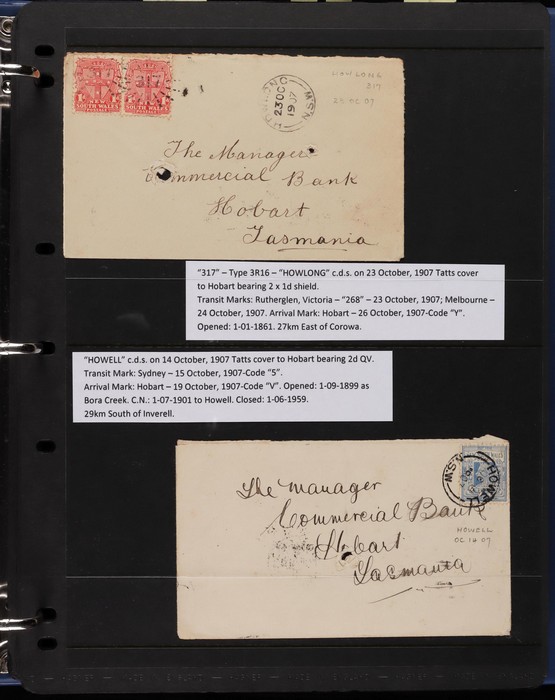 317 317
NEW NEW
SOUTH WALES SOUTH WALES
HOWLONG
23 OC
19 07
N.S.W
HOWLONG
317
23 OC 07
The Manager
Commercial Bank
Hobart
Tasmania
"317" – Type 3R16 – "HOWLONG" c.d.s. on 23 October, 1907 Tatts cover
to Hobart bearing 2 x 1d shield.
Transit Marks: Rutherglen, Victoria – "268" – 23 October, 1907; Melbourne –
24 October, 1907. Arrival Mark: Hobart – 26 October, 1907-Code "Y".
Opened: 1-01-1861. 27km East of Corowa.
"HOWELL" c.d.s. on 14 October, 1907 Tatts cover to Hobart bearing 2d QV.
Transit Mark: Sydney – 15 October, 1907-Code "5".
Arrival Mark: Hobart – 19 October, 1907-Code "V". Opened: 1-09-1899 as
Bora Creek. C.N.: 1-07-1901 to Howell. Closed: 1-06-1959.
29km South of Inverell.
HOWELL
N.S.W
The Manager
Commercial Bank
Hobart
Tasmania
HOWELL
OC 14 07